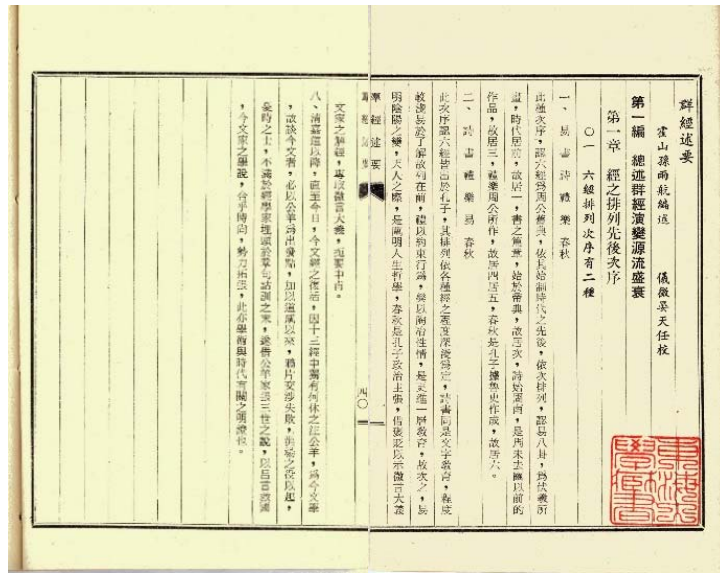 群經述要
霍山孫雨航編述　儀徵吳天任校
第一編　總述群經演變源流盛衰
第一章　經之排列先後次序
〇一　六經排列次序有二種
一、易　書　詩　禮　樂　春秋
此種次序，認六經爲周公舊典，依其始創時代之先後，依次排列，認易八卦，爲伏羲所
畫，時代居前，故居一，書之篇章，始於帝典，故居次，詩始周南，是周末去國以前的
作品，故居三，禮樂周公所作，故居四居五，春秋是孔子據魯史作成，故居六。
二、詩　書　禮　樂　易　春秋
此次序認六經皆出於孔子，其排列依各種經之程度深淺爲定，詩書同是文字教育，程度
較淺易於了解故列在前，禮以約束行爲，樂以陶冶性情，是又進一層教育，故次之，易
明陰陽之變，天人之際，是闡明人生哲學，春秋是孔子政治主張，借褒貶以示微言大義
群經述要
四〇
文家之解經，專取微言大義，扼要中肯。
八、清嘉道以降，直至今日，今文經之復活，因十三經中獨有何休之注公羊，爲今文家
，故談今文者，必以公羊爲出發點，加以道咸以來，鴉片交涉失敗，洪楊之役以起，
憂時之士，不滿於經學家埋頭於章句詁訓之末，遂借公羊家張三世之說，以昌言救國
，今文家之學說，合乎時尚，勢力拓張，此亦學術與時代有關之明證也。